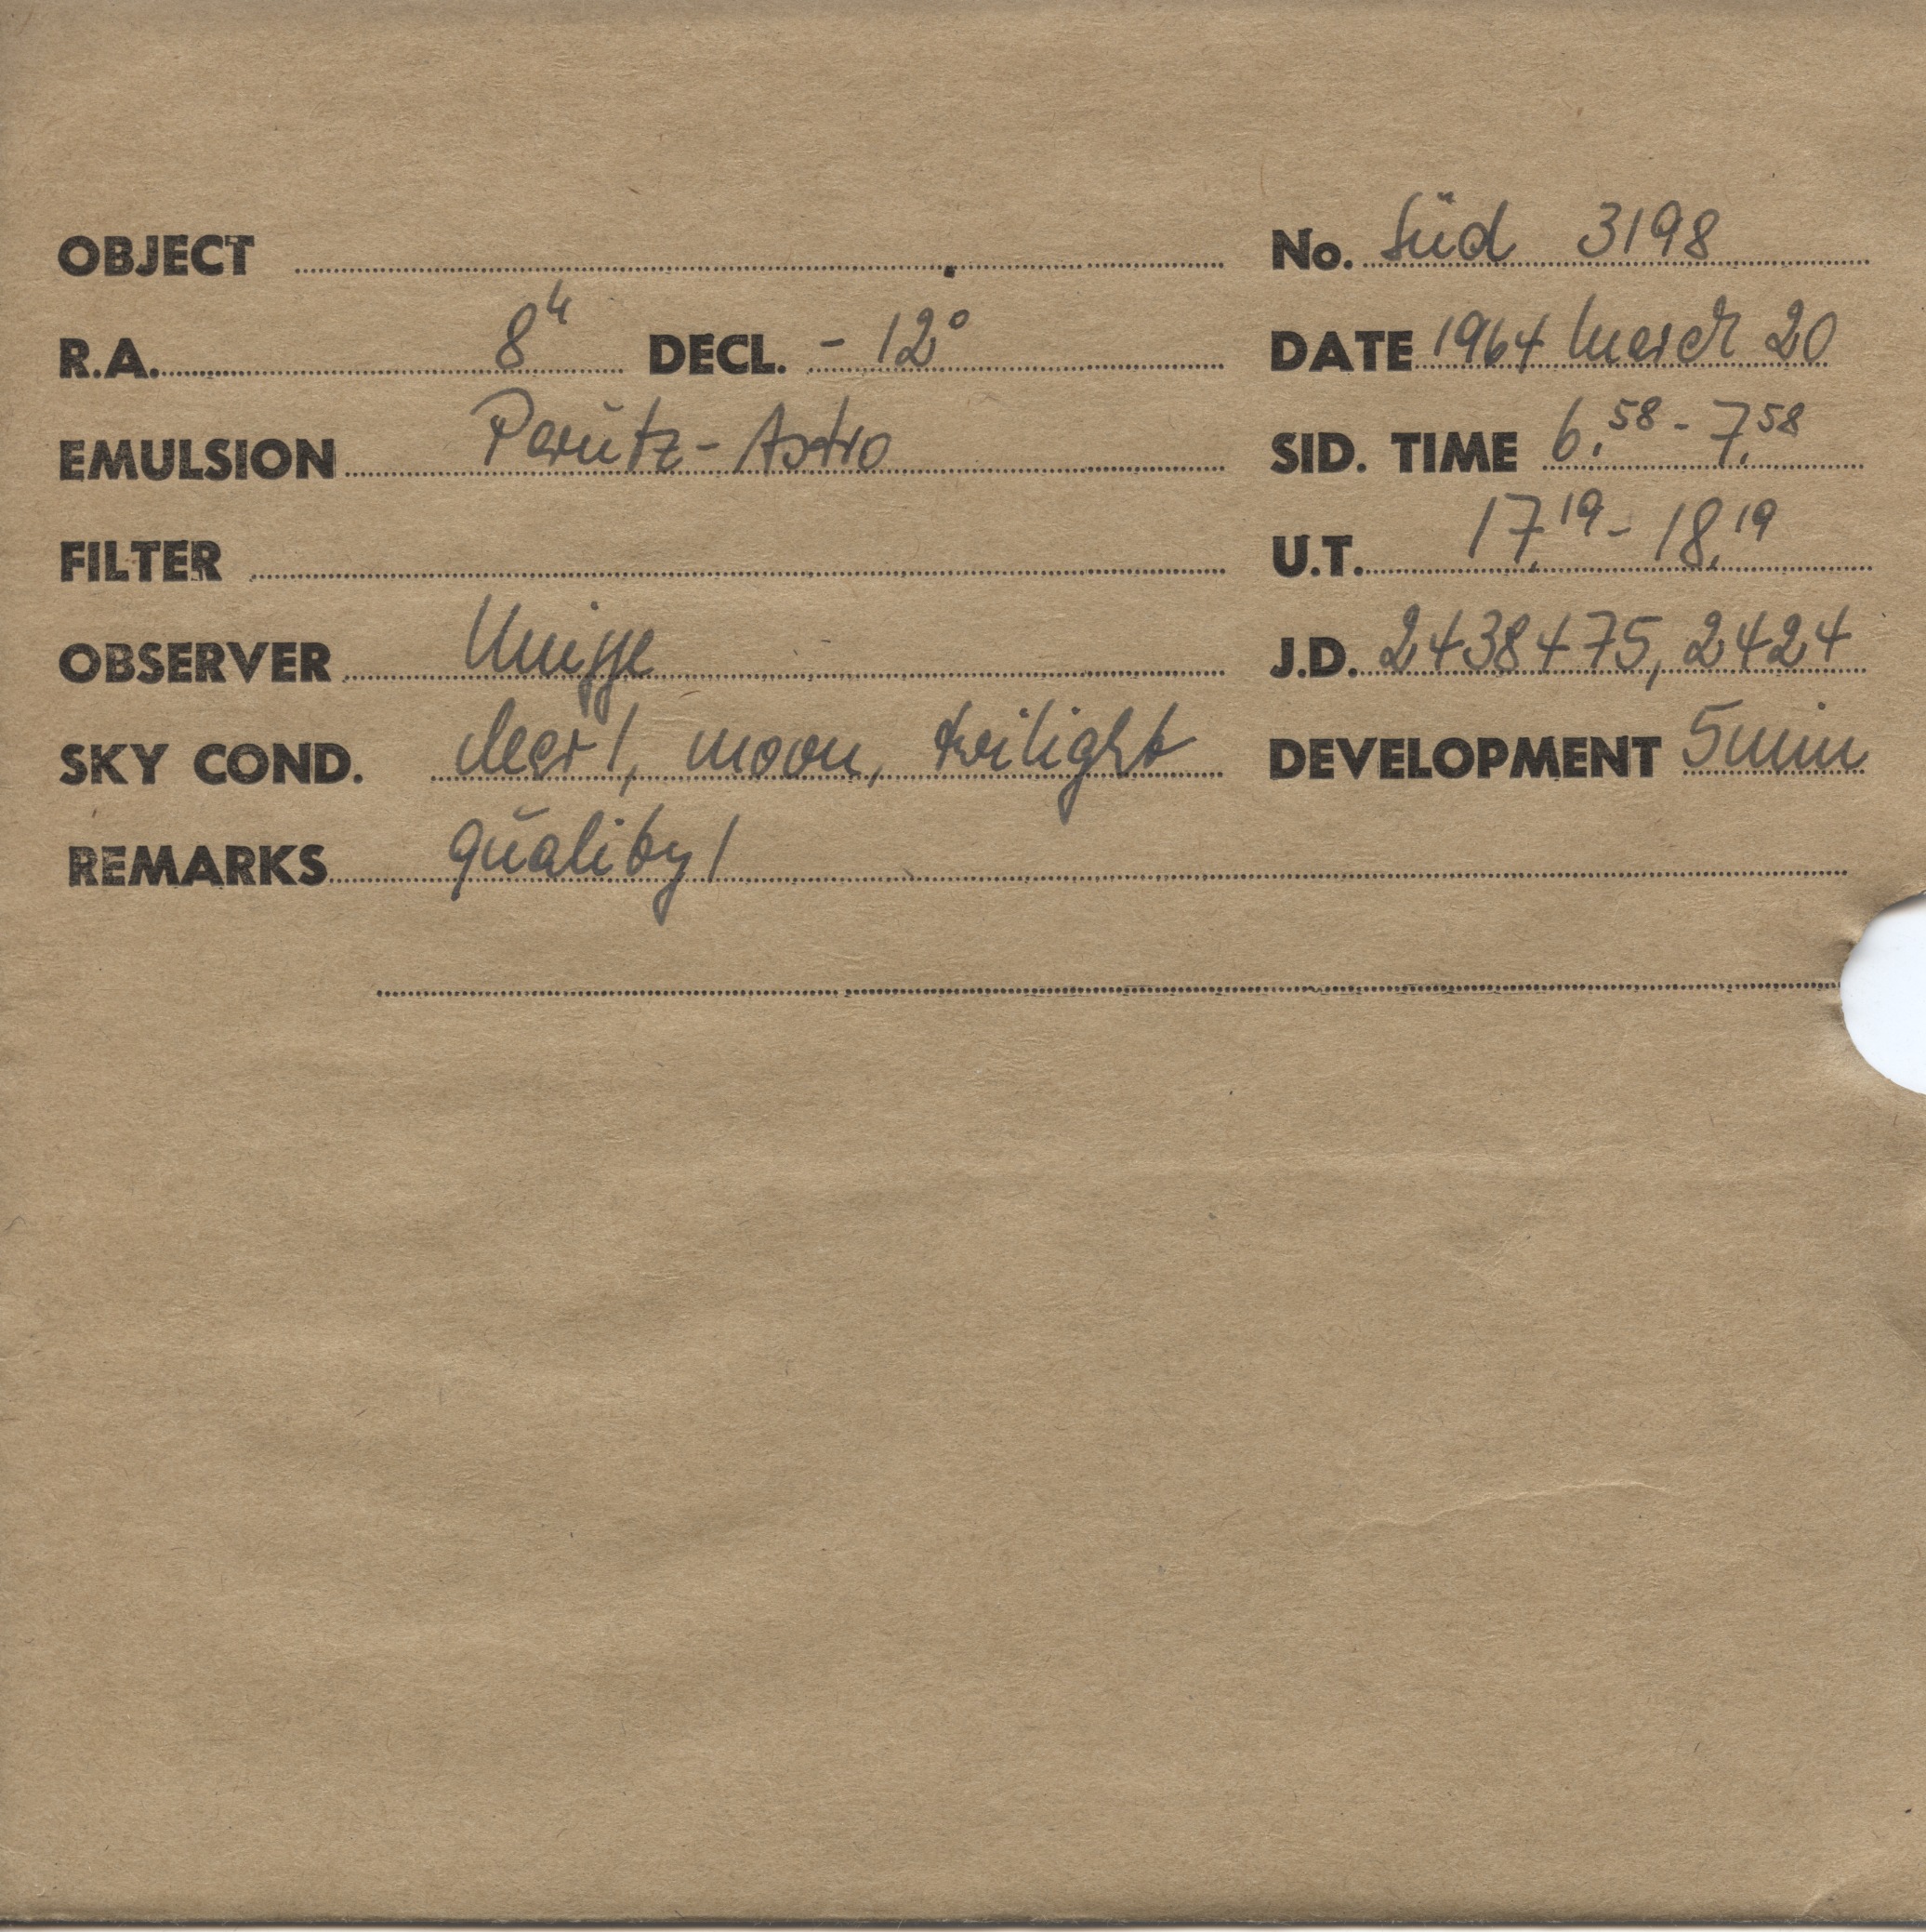 OBJECT No. Süd 3198
R.A. 8h DECL. - 12° DATE 1964 March 20
EMULSION Perutz - Astro SID. TIME 6,58 - 7,58
FILTER U.T. 17,19 - 18,19
OBSERVER J.D. 2438475,2424
SKY COND. clear 1, moon, twilight DEVELOPMENT 5 min
REMARKS quality 1